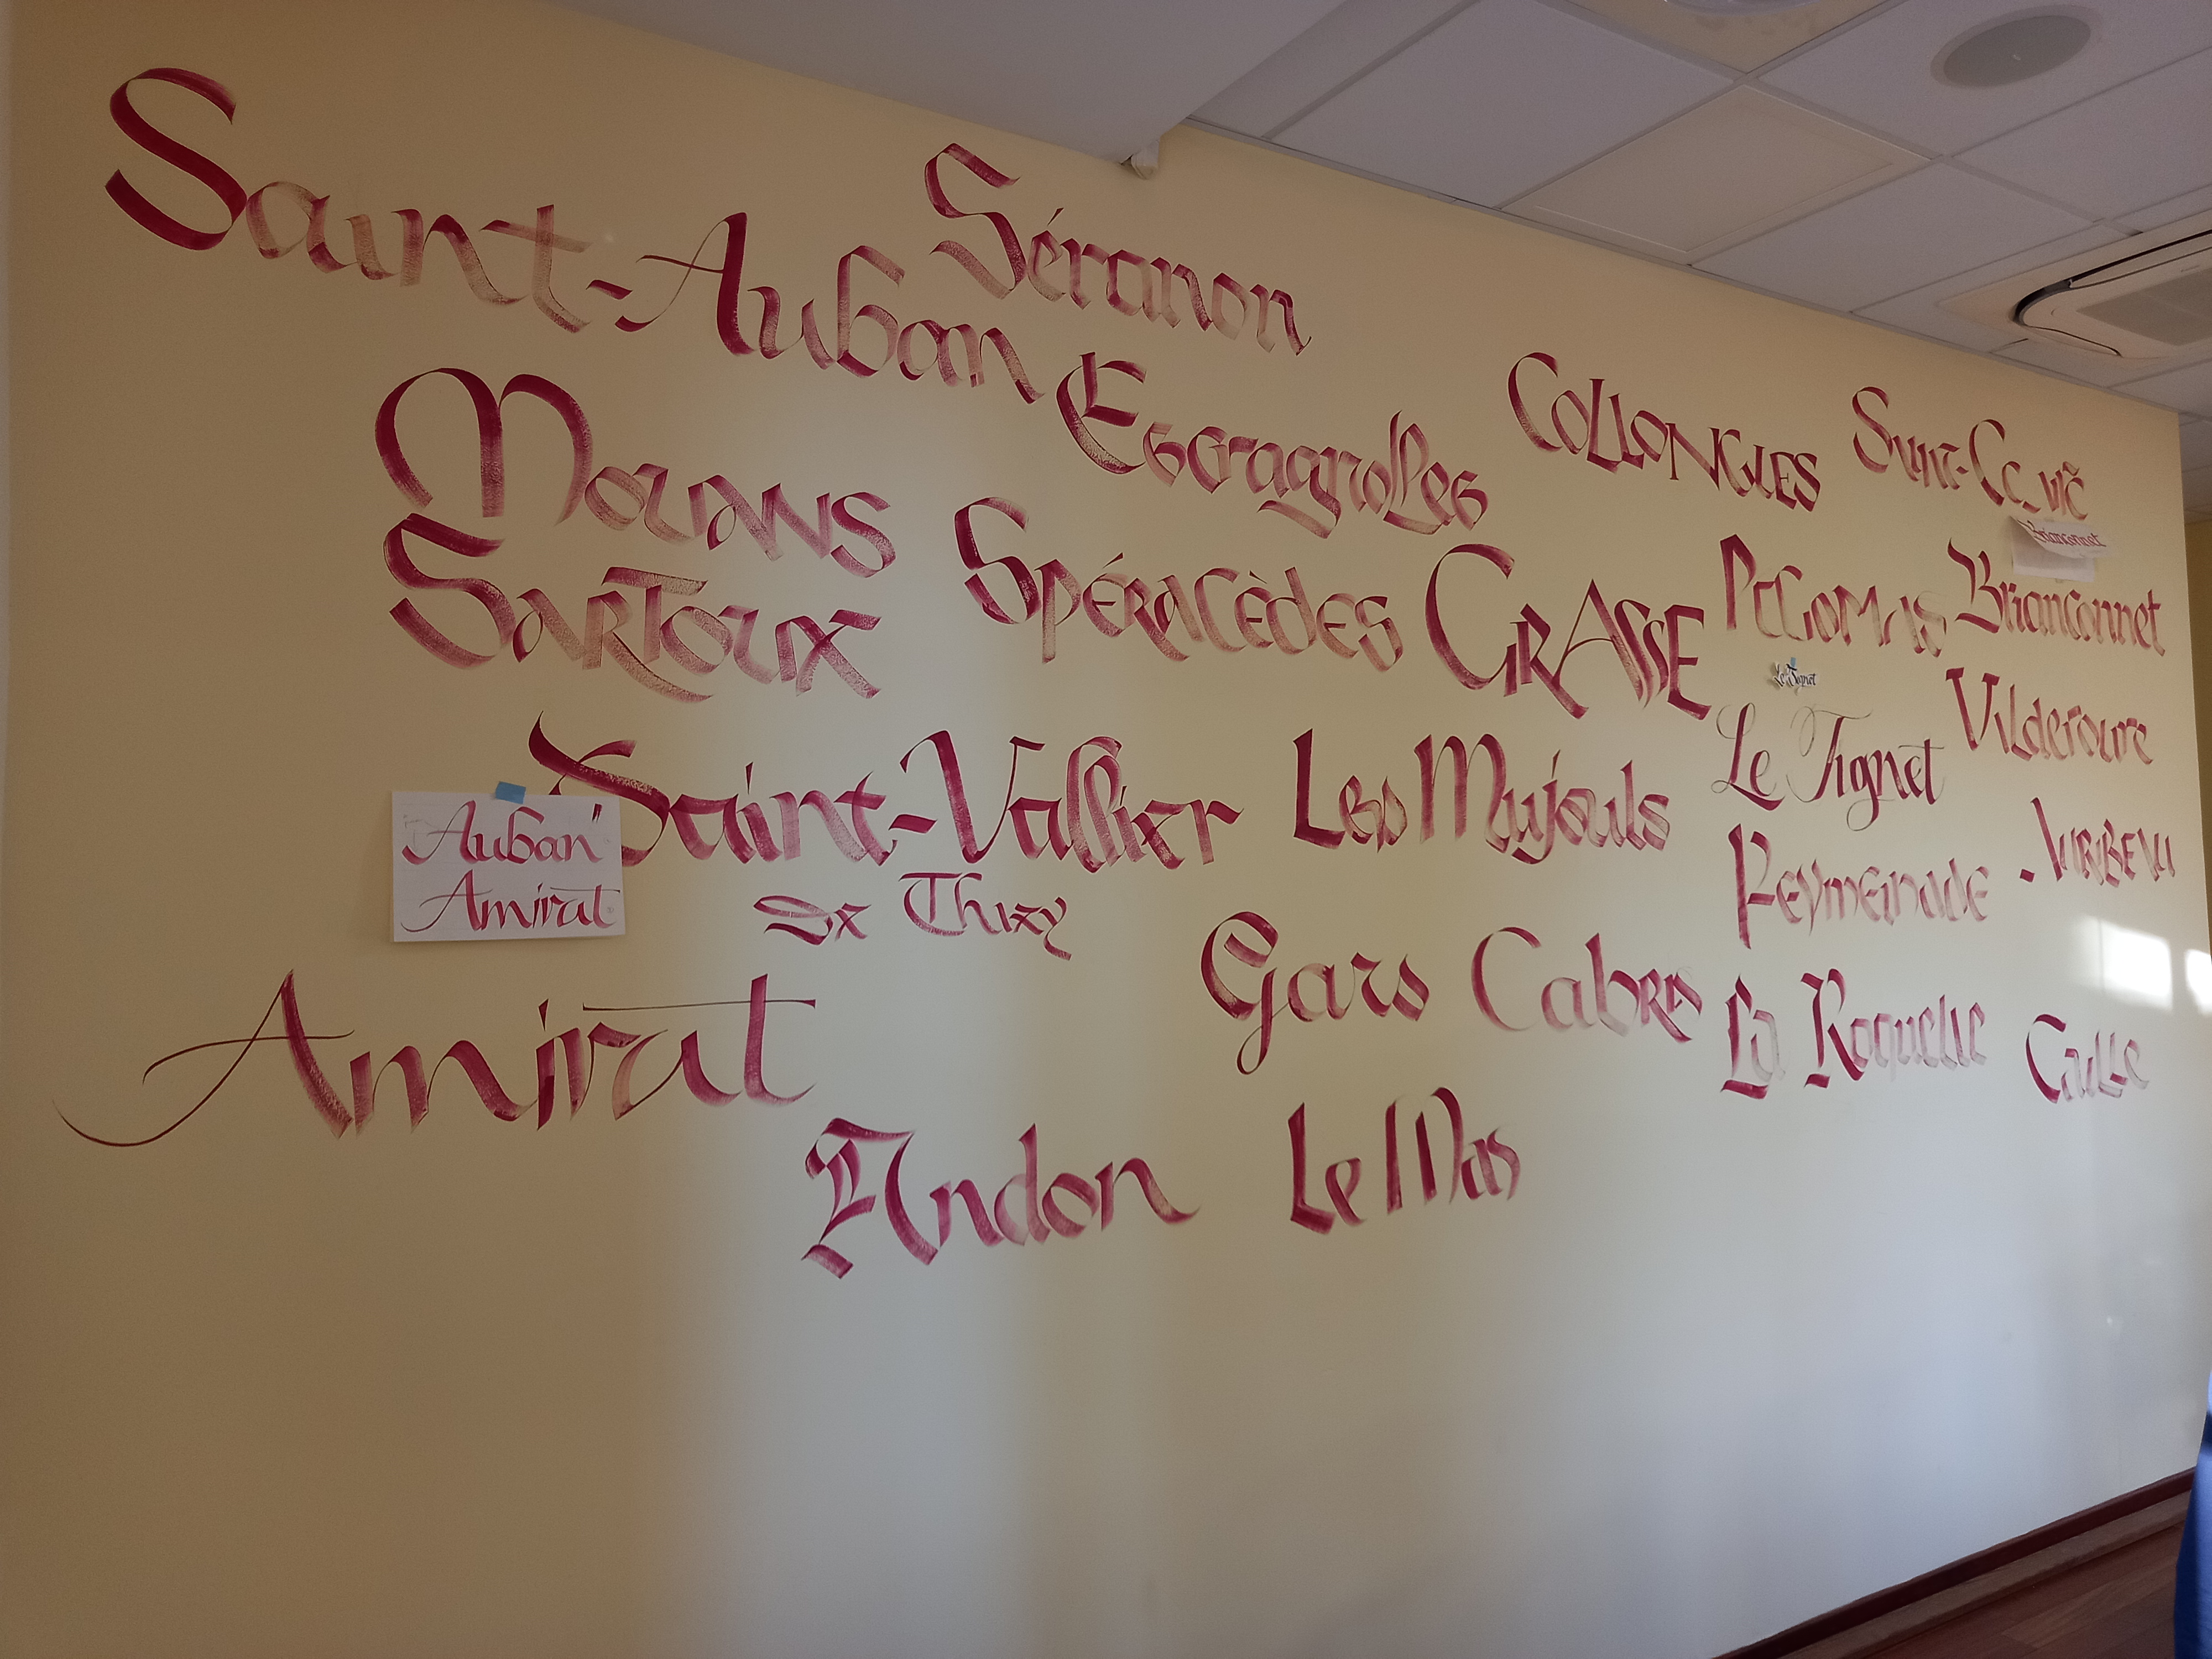 Saint-Auban
Séranon
Escragnolles
COLLONGUES
Mouans
Sartoux
SPÉRACÈDES
GRASSE
Briançonnet
Brianconnet
Le Tignet
Le Tignet
Saint-Vallier
De Thiey
Les Mujouls
"Auban"
Amirat
Peymeinade
Gars
Cabris
Amirat
La Roquette
Caille
Andon
Le Mas